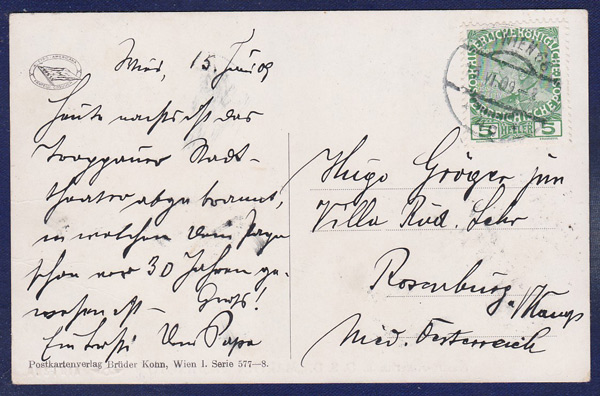 Wien, 15. Juni 09
Heute nachts ist das
Troppauer Stadt-
theater abgebrannt,
in welchem Dein Papa
schon vor 30 Jahren ge-
wesen ist –
Dein Papa
Postkartenverlag Brüder Kohn, Wien I. Serie 577—8.
Hugo Gröger jun
Villa Rud. Lehr
Rosenburg a/Kamp
Nied. Oesterreich
WIEN
VI 09
5 HELLER 5